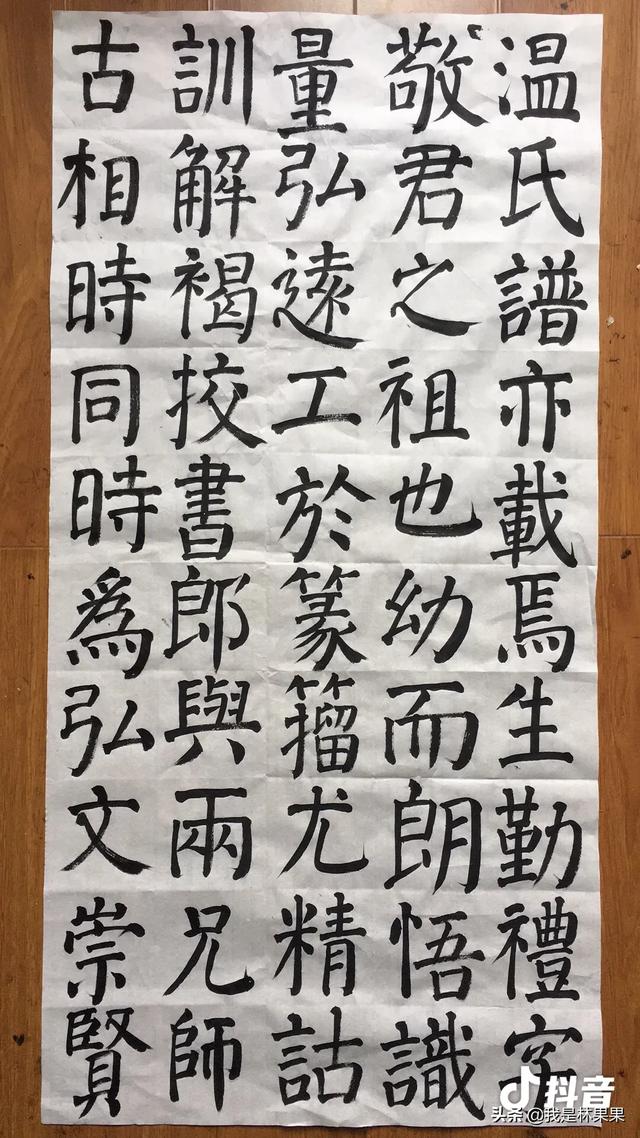 温氏譜亦載焉生勤禮字
敬君之祖也幼而朗悟識
量弘遠工於篆籕尤精詁
訓解褐挍書郎與兩兄師
古相時同時爲弘文崇賢
抖音
头条 @我是林果果